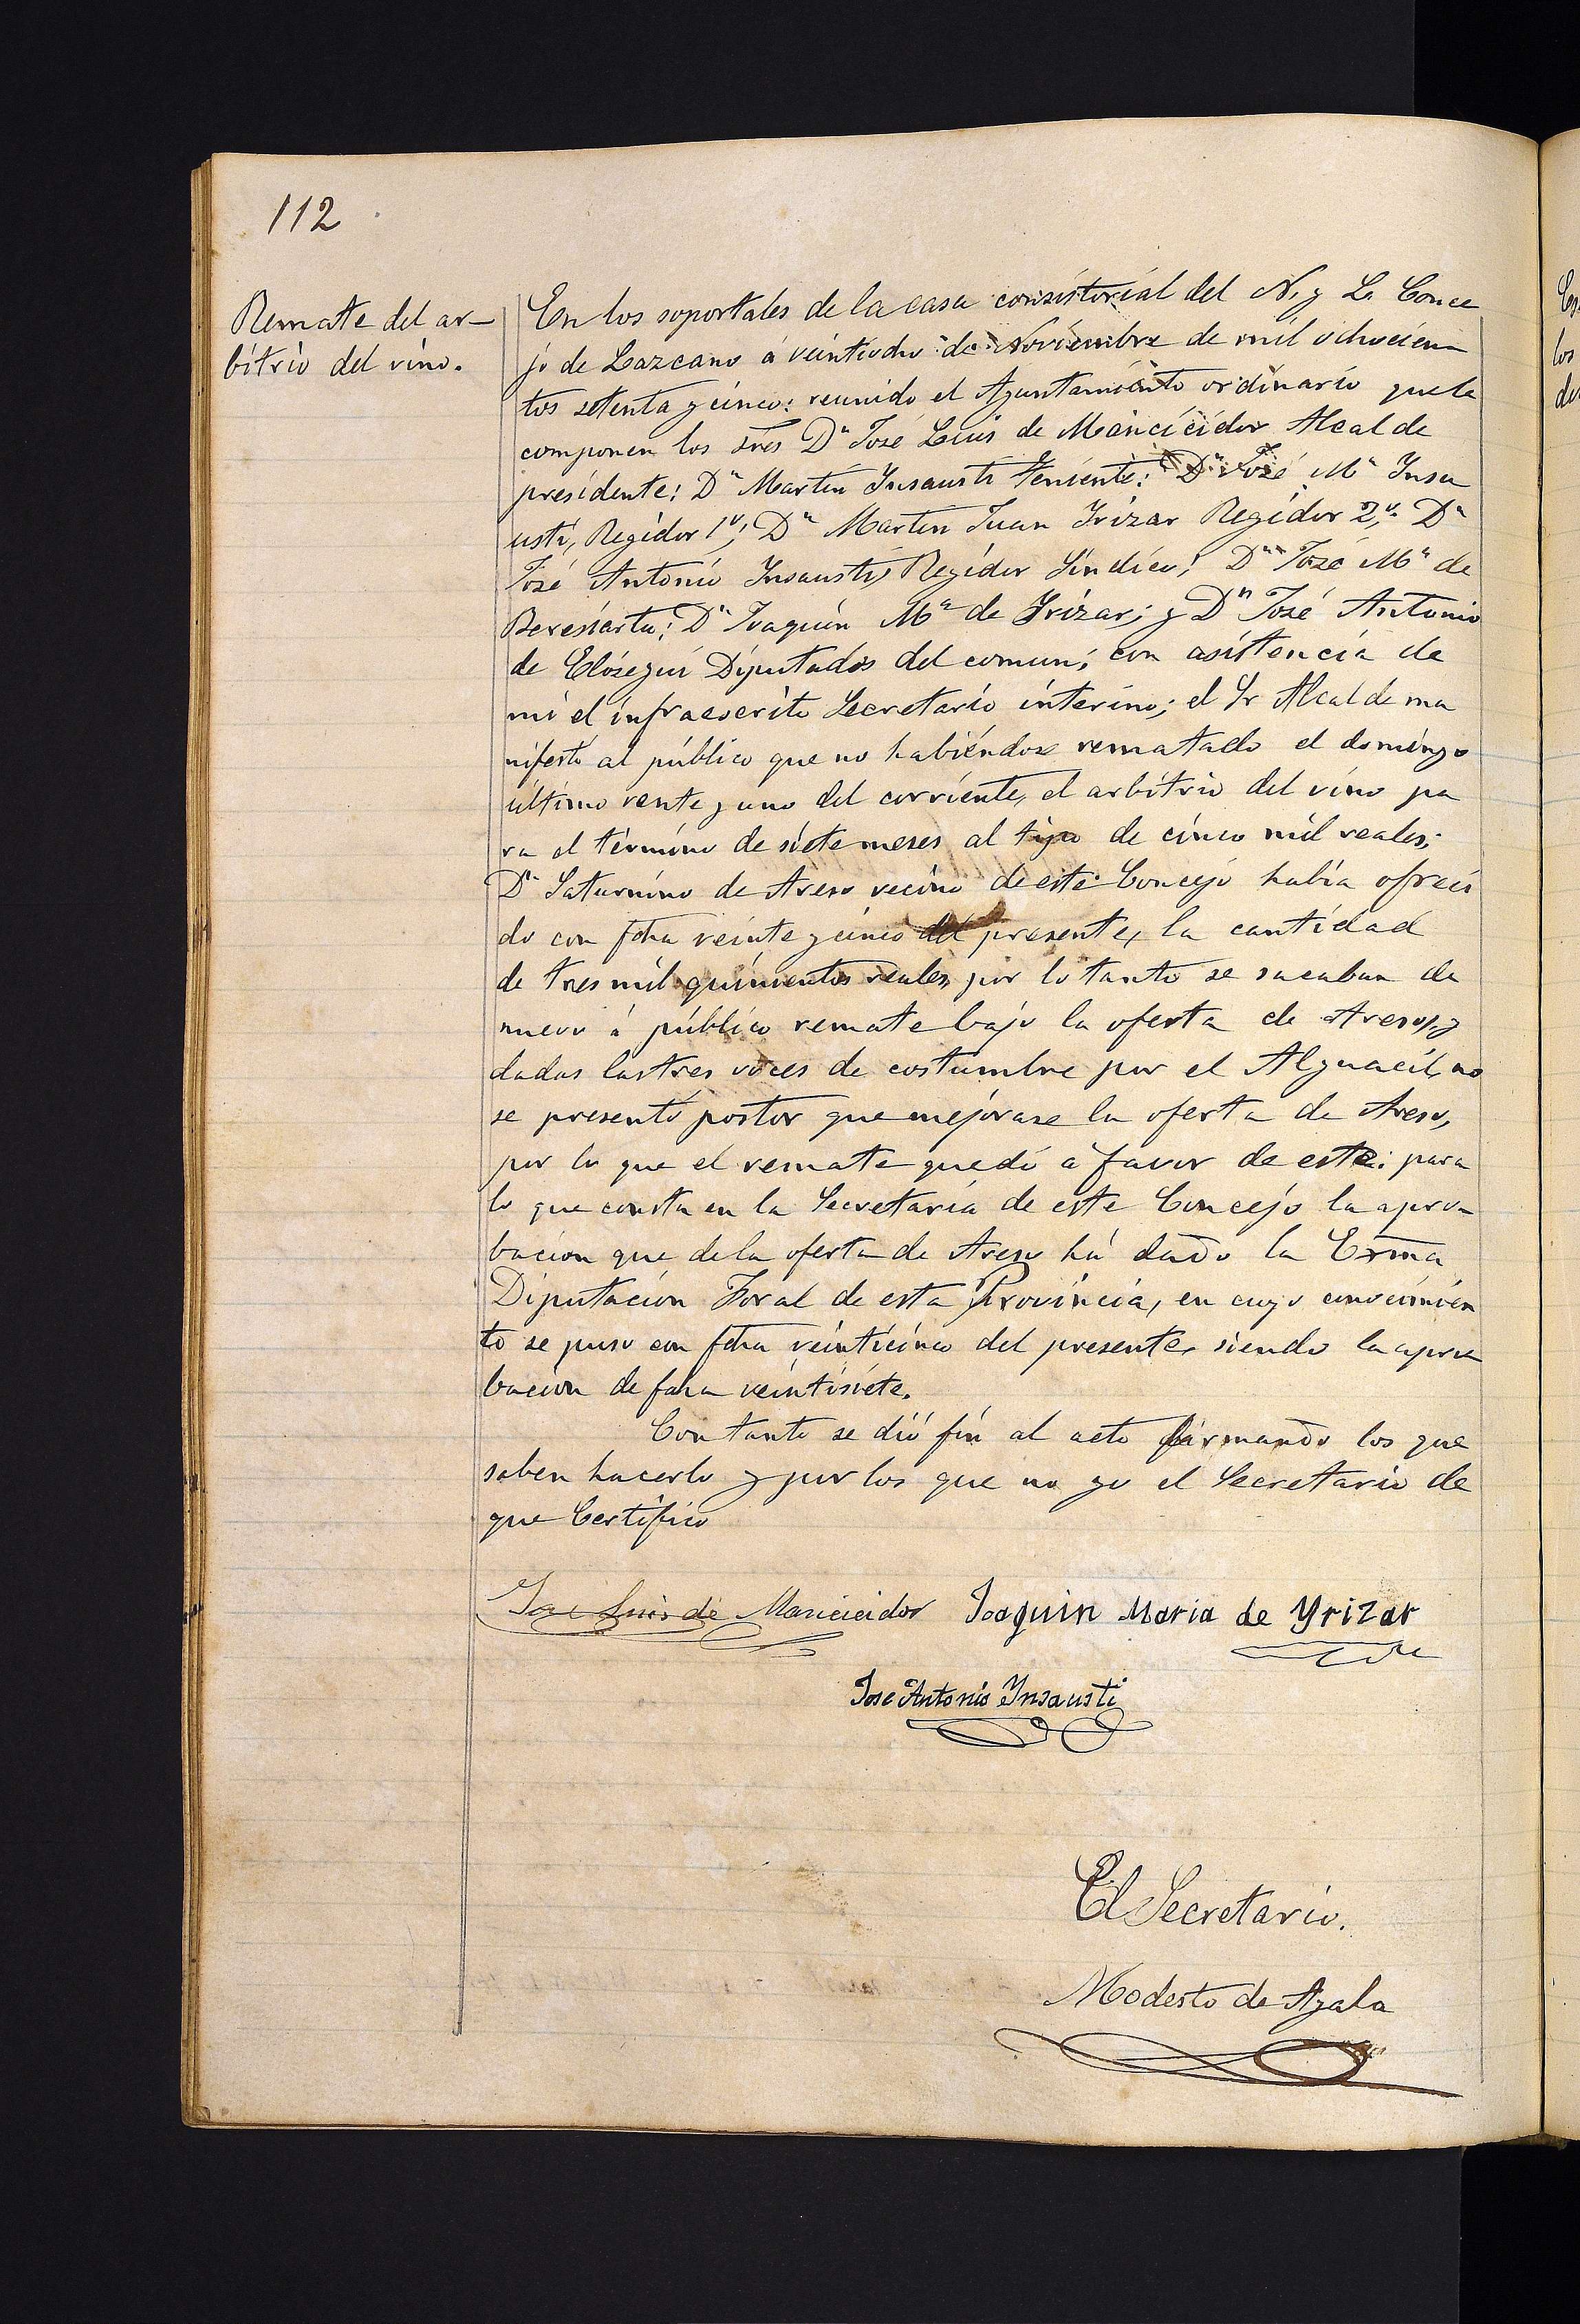 112
Remate del ar-
bitrio del vino.
En los soportales de la casa consistorial del N. y L. Conce
jo de Lazcano á veintiocho de Noviembre de mil ochocien
tos setenta y cinco: reunido el Ayuntamiento ordinario que le
componen los Sres Dn José Luis de Mancicidor Alcalde
presidente: Dn Martin Insausti Teniente: Dn José Ma Insa
usti, Regidor 1o; Dn Martin Juan Irizar Regidor 2o; Dn
José Antonio Insausti, Regidor Síndico; Dn José Ma de
Beresiartu; Dn Joaquin Ma de Irizar; y Dn José Antonio
de Elósegui Diputados del comun; con asistencia de
mi el infraescrito Secretario interino; el Sr Alcalde ma
nifestó al público que no habiéndose rematado el domingo
último vente y uno del corriente, el arbitrio del vino pa
ra el término de siete meses al tipo de cinco mil reales;
Dn Saturnino de Areso vecino de este Concejo habia ofreci
do con fcha veinte y cinco del presente, la cantidad
de tres mil quinientos reales, por lo tanto se sacaban de
nuevo á público remate bajo la oferta de Areso, y
dadas las tres voces de costumbre por el Alguacil, no
se presentó postor que mejorase la oferta de Areso,
por lo que el remate quedó á favor de este: para
lo que consta en la Secretaría de este Concejo la apro-
bacion que de la oferta de Areso há dado la Exma
Diputacion Foral de esta Provincia, en cuyo conocimien
to se puso con fcha veinticinco del presente, siendo la apro
bacion de fcha veintisiete.
Con tanto se dió fin al acto firmando los que
saben hacerlo y por los que no yo el Secretario de
que Certifico
Jose Luis de Mancicidor Joaquin Maria de Yrizar
Jose Antonio Ynsausti
El Secretario.
Modesto de Ayala